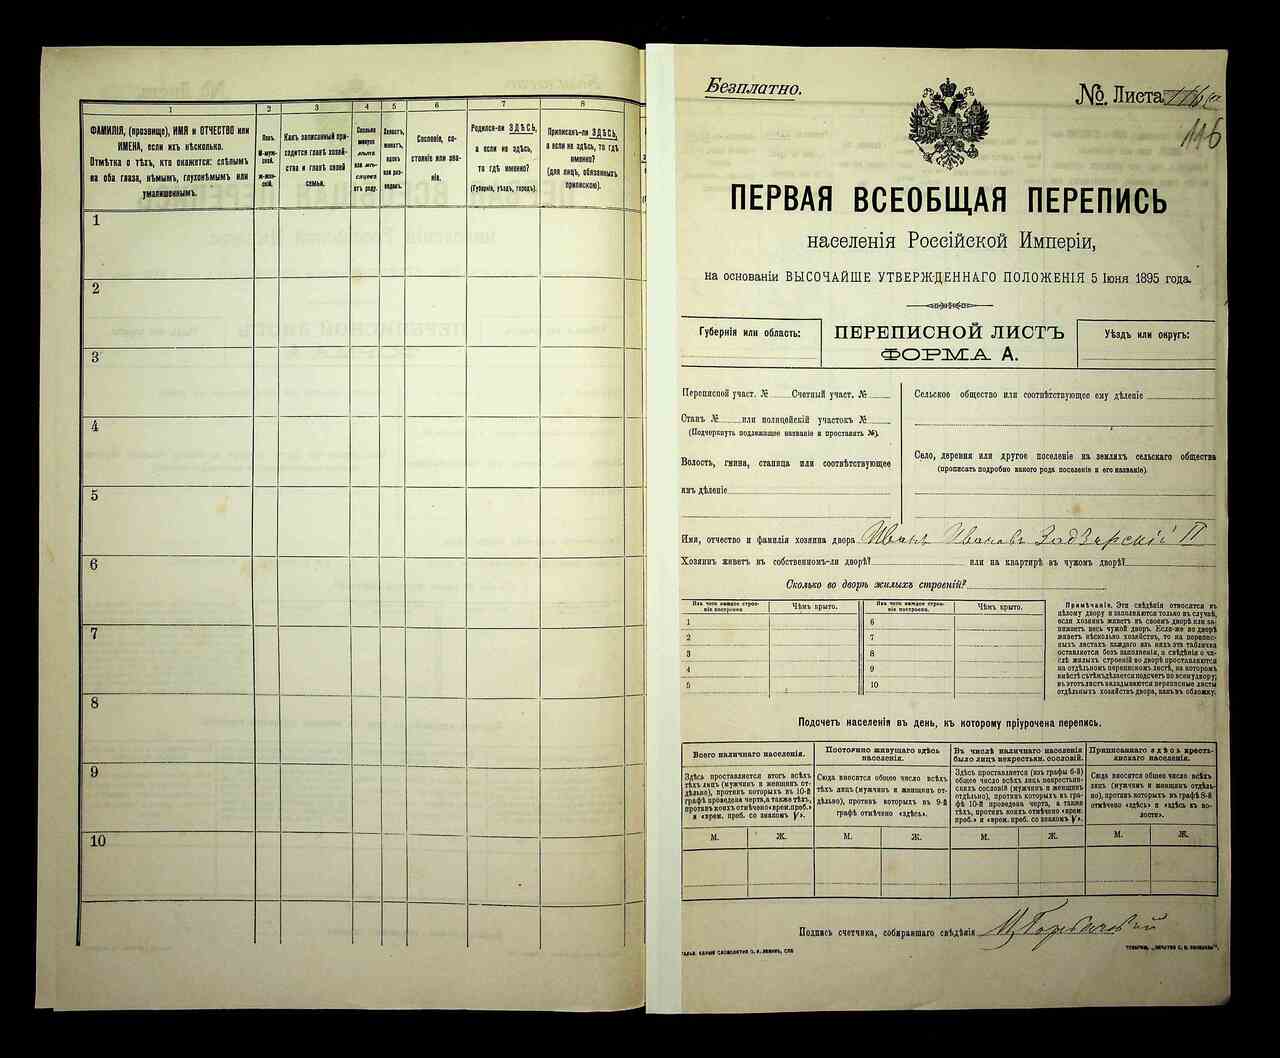 1
2
3
4
5
6
7
8
ФАМИЛІЯ, (прозвище), ИМЯ и ОТЧЕСТВО или
ИМЕНА, если ихъ нѣсколько.
Отмѣтка о тѣхъ, кто окажется: слѣпымъ
на оба глаза, нѣмымъ, глухонѣмымъ или
умалишеннымъ.
Полъ.
М-муж-
ской.
ж-жен-
скій.
Какъ записанный при-
ходится главѣ хозяй-
ства и главѣ своей
семьи.
Сколько
минуло
лѣтъ
или мѣ-
сяцевъ
отъ роду.
Холостъ,
женатъ,
вдовъ
или раз-
веденъ.
Сословіе, со-
стояніе или зва-
ніе.
Родился-ли ЗДѢСЬ,
а если не здѣсь,
то гдѣ именно?
(Губернія, уѣздъ, городъ).
Приписанъ-ли ЗДѢСЬ,
а если не здѣсь, то гдѣ
именно?
(для лицъ, обязанныхъ
припиской).
1
2
3
4
5
6
7
8
9
10
Безплатно.
№ Листа
116
ПЕРВАЯ ВСЕОБЩАЯ ПЕРЕПИСЬ
населенія Россійской Имперіи,
на основаніи ВЫСОЧАЙШЕ УТВЕРЖДЕННАГО ПОЛОЖЕНІЯ 5 Іюня 1895 года.
Губернія или область:
ПЕРЕПИСНОЙ ЛИСТЪ
ФОРМА А.
Уѣздъ или округъ:
Переписной участ. № Счетный участ. №
Станъ № или полицейскій участокъ №
(Подчеркнуть подлежащее названіе и проставить №).
Волость, гмина, станица или соотвѣтствующее
имъ дѣленіе
Сельское общество или соотвѣтствующее ему дѣленіе
Село, деревня или другое поселеніе на земляхъ сельскаго общества
(прописать подробно какого рода поселеніе и его названіе).
Имя, отчество и фамилія хозяина двора Иванъ Ивановъ
Хозяинъ живетъ въ собственномъ-ли дворѣ? или на квартирѣ въ чужомъ дворѣ?
Сколько во дворѣ жилыхъ строеній?
Изъ чего каждое строе-
ніе построено.
Чѣмъ крыто.
Изъ чего каждое строе-
ніе построено.
Чѣмъ крыто.
1
2
3
4
5
6
7
8
9
10
Примѣчаніе. Эти свѣдѣнія относятся къ
цѣлому двору и заполняются только въ случаѣ,
если хозяинъ живетъ въ своемъ дворѣ или за-
нимаетъ весь чужой дворъ. Если-же во дворѣ
живетъ нѣсколько хозяйствъ, то на перепис-
ныхъ листахъ каждаго изъ нихъ эта табличка
оставляется безъ заполненія, а свѣдѣнія о чи-
слѣ жилыхъ строеній во дворѣ проставляются
на отдѣльномъ переписномъ листѣ, на которомъ
вмѣстѣ съ тѣмъ дѣлается подсчетъ по всему двору;
въ этотъ листъ вкладываются переписные листы
отдѣльныхъ хозяйствъ двора, какъ въ обложку.
Подсчетъ населенія въ день, къ которому пріурочена перепись.
Всего наличнаго населенія.
Постоянно живущаго здѣсь
населенія.
Въ числѣ наличнаго населенія
было лицъ некрестьян. сословій.
Приписаннаго здѣсь кресть-
янскаго населенія.
Здѣсь проставляется итогъ всѣхъ
тѣхъ лицъ (мужчинъ и женщинъ от-
дѣльно), противъ которыхъ въ 10-й
графѣ проведена черта, а также тѣхъ,
противъ коихъ отмѣчено «врем. преб.»
и «врем. преб. со знакомъ V».
Сюда вносится общее число всѣхъ
тѣхъ лицъ (мужчинъ и женщинъ от-
дѣльно), противъ которыхъ въ 9-й
графѣ отмѣчено «здѣсь».
Здѣсь проставляется (изъ графы 6-й)
общее число всѣхъ лицъ некрестьян-
скихъ сословій (мужчинъ и женщинъ
отдѣльно), противъ которыхъ въ гра-
фѣ 10-й проведена черта, а также
тѣхъ, противъ коихъ отмѣчено «врем.
преб.» и «врем. преб. со знакомъ V».
Сюда вносится общее число всѣхъ
лицъ (мужчинъ и женщинъ отдѣль-
но), противъ которыхъ въ графѣ 8-й
отмѣчено «здѣсь» и «здѣсь къ во-
лости».
М. Ж. М. Ж. М. Ж. М. Ж.
Подпись счетчика, собиравшаго свѣдѣнія